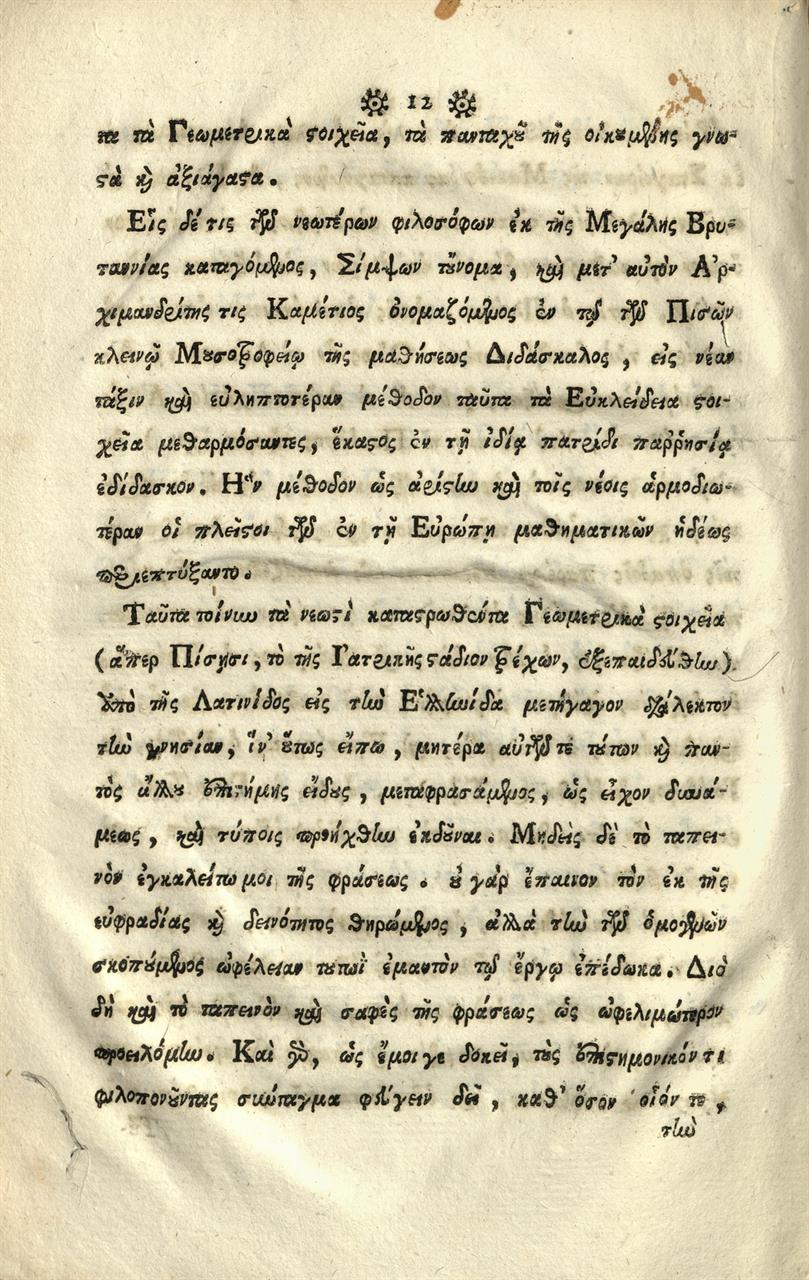 12
τα τὰ Γεωμετρικὰ ϛοιχεῖα, τὰ πανταχοῦ τῆς οἰκουμένης γνω-
ϛὰ ϗ̀ ἀξιάγαϛα.
Εἷς δέ τις τῶν νεωτέρων φιλοσόφων ἐκ τῆς Μεγάλης Βρυ-
ταννίας καταγόμενος, Σίμψων τοὔνομα, καὶ μετ' αὐτὸν Ἀρ-
χιμανδρίτης τις Καμέτιος ὀνομαζόμενος ἐν τῷ τῶν Πισῶν
κλεινῷ Μουσοτροφείῳ τῆς μαθήσεως Διδάσκαλος, εἰς νέαν
τάξιν καὶ εὐληπτοτέραν μέθοδον ταῦτα τὰ Εὐκλείδεια ϛοι-
χεῖα μεθαρμόσαντες, ἕκαϛος ἐν τῇ ἰδίᾳ πατρίδι παῤῥησίᾳ
ἐδίδασκον. Ἣν μέθοδον ὡς ἀρίϛην καὶ τοῖς νέοις ἁρμοδιω-
τέραν οἱ πλεῖϛοι τῶν ἐν τῇ Εὐρώπῃ μαθηματικῶν ἡδέως
περιεπτύξαντο.
Ταῦτα τοίνυν τὰ νεωϛὶ καταϛρωθέντα Γεωμετρικὰ ϛοιχεῖα
(ἅπερ Πίσῃσι, τὸ τῆς Ἰατρικῆς ϛάδιον τρέχων, ἐξεπαιδεύθην)
ἀπὸ τῆς Λατινίδος εἰς τὴν Ἑλληνίδα μετήγαγον διάλεκτον
τὴν γνησίαν, ἵν' οὕτως εἴπω, μητέρα αὐτῶν τε τούτων ϗ̀ παν-
τὸς ἄλλου ἐπιϛήμης εἴδους, μεταφρασάμενος, ὡς εἶχον δυνά-
μεως, καὶ τύποις προήχθην ἐκδοῦναι. Μηδεὶς δὲ τὸ ταπει-
νὸν ἐγκαλείτω μοι τῆς φράσεως. οὐ γὰρ ἔπαινον τὸν ἐκ τῆς
εὐφραδίας ϗ̀ δεινότητος θηρώμενος, ἀλλὰ τὴν τῶν ὁμογενῶν
σκοπούμενος ὠφέλειαν τουτωῒ ἐμαυτὸν τῷ ἔργῳ ἐπέδωκα. Διὸ
δὴ καὶ τὸ ταπεινὸν καὶ σαφὲς τῆς φράσεως ὡς ὠφελιμώτερον
προειλόμην. Καὶ γὰρ, ὡς ἔμοιγε δοκεῖ, τοὺς ἐπιϛημονικόν τι
φιλοπονοῦντας σύνταγμα φεύγειν δεῖ, καθ' ὅσον οἷόν τε,
τὴν